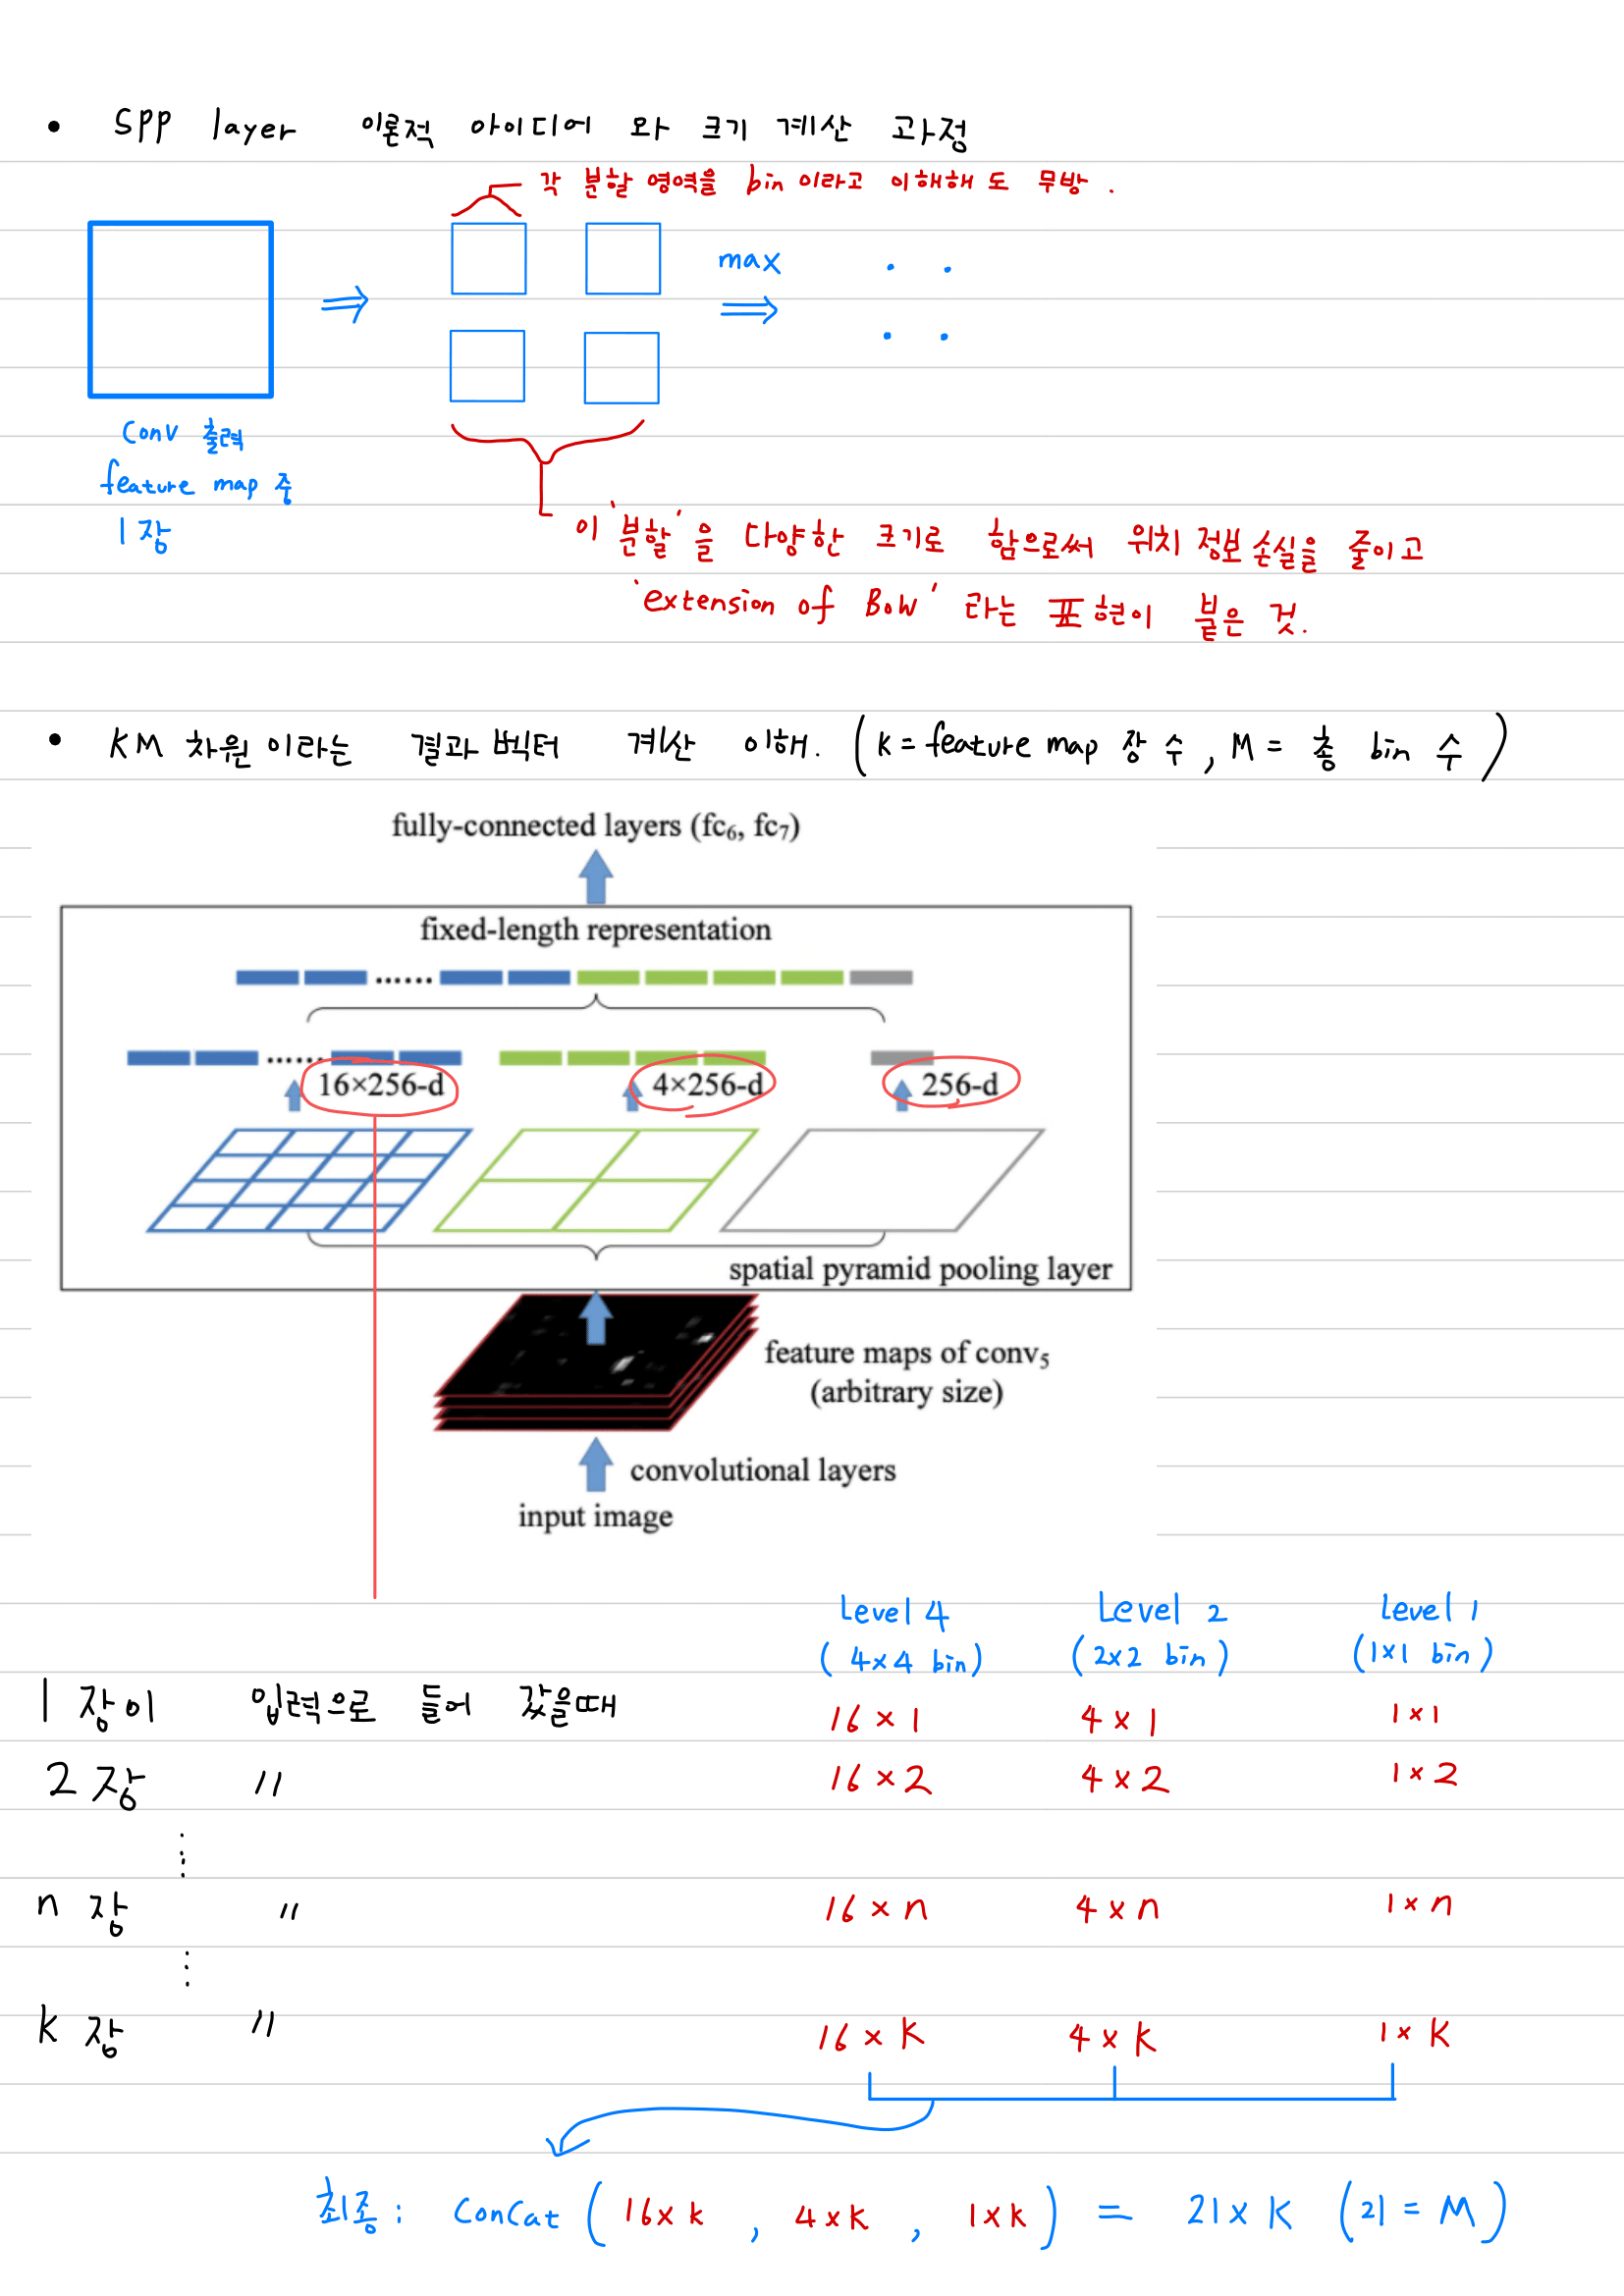 • SPP layer 이론적 아이디어 와 크기 계산 과정
각 분할 영역을 bin 이라고 이해해 도 무방 .
max
Conv 출력
feature map 중
1 장
이 '분할'을 다양한 크기로 함으로써 위치 정보 손실을 줄이고
'extension of BoW' 라는 표현이 붙은 것.
• KM 차원 이라는 결과 벡터 계산 이해. (k = feature map 장 수 , M = 총 bin 수)
fully-connected layers (fc₆, fc₇)
fixed-length representation
......
......
16×256-d 4×256-d 256-d
spatial pyramid pooling layer
feature maps of conv₅
(arbitrary size)
convolutional layers
input image
Level 4 Level 2 Level 1
( 4x4 bin) (2x2 bin) (1x1 bin)
1 장이 입력으로 들어 갔을때 16 × 1 4 × 1 1 × 1
2 장 " 16 × 2 4 × 2 1 × 2
n 장 " 16 × n 4 × n 1 × n
k 장 " 16 × K 4 × K 1 × K
최종 : ConCat ( 16 x k , 4 x K , 1 x k ) = 21 x K (21 = M)